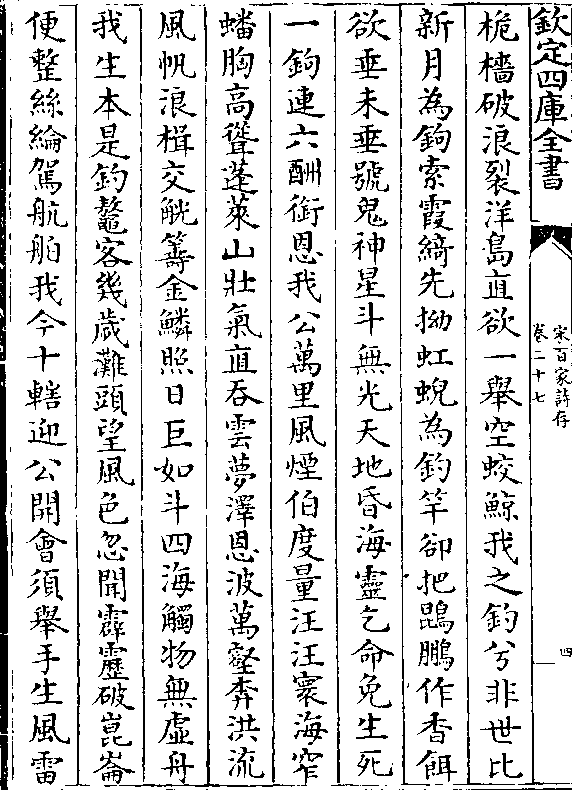 欽定四庫全書
宋百家詩存
卷二十七
四
桅檣破浪裂洋島直欲一舉空蛟鯨我之釣兮非世比
新月為鉤索霞綺先拗虹蜺為釣竿卻把鵾鵬作香餌
欲垂未垂號鬼神星斗無光天地昏海靈乞命免生死
一鉤連六酬銜恩我公萬里風煙伯度量汪汪寰海窄
蟠胸高聳蓬萊山壯氣直吞雲夢澤恩波萬壑奔洪流
風帆浪楫交觥籌金鱗照日巨如斗四海觸物無虛舟
我生本是釣鼇客幾歲灘頭望風色忽聞霹靂破崑崙
便整絲綸駕航舶我今十轄迎公開會須舉手生風雷